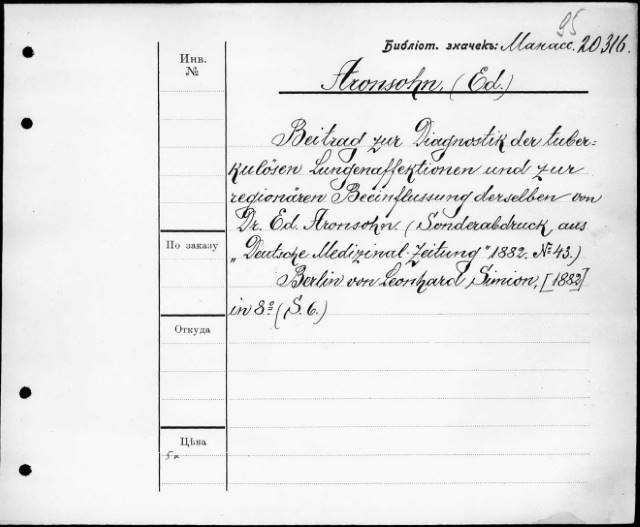 95
Библіот. значекъ: Манасс. 20316.
Инв.
№
Aronsohn, (Ed.)
Beitrad zur Diagnostik der tuber=
kulösen Lungenaffektionen und zur
regionären Beeinflussung derselben von
Dr. Ed. Aronsohn. (Sonderabdruck aus
По заказу
„Deutsche Medizinal-Zeitung" 1882. № 43.)
Berlin von Leonhard Simion, [1882]
in 8º (S. 6.)
Откуда
Цѣна